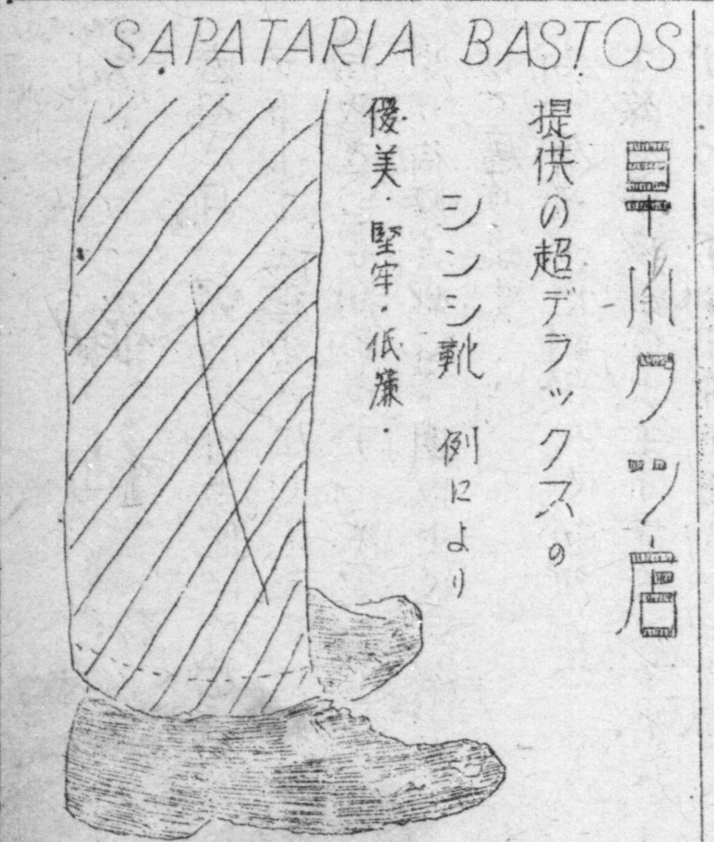 SAPATARIA BASTOS
早川クツ店
提供の超デラックスの
シンシ靴 例により
優美・堅牢・低廉・